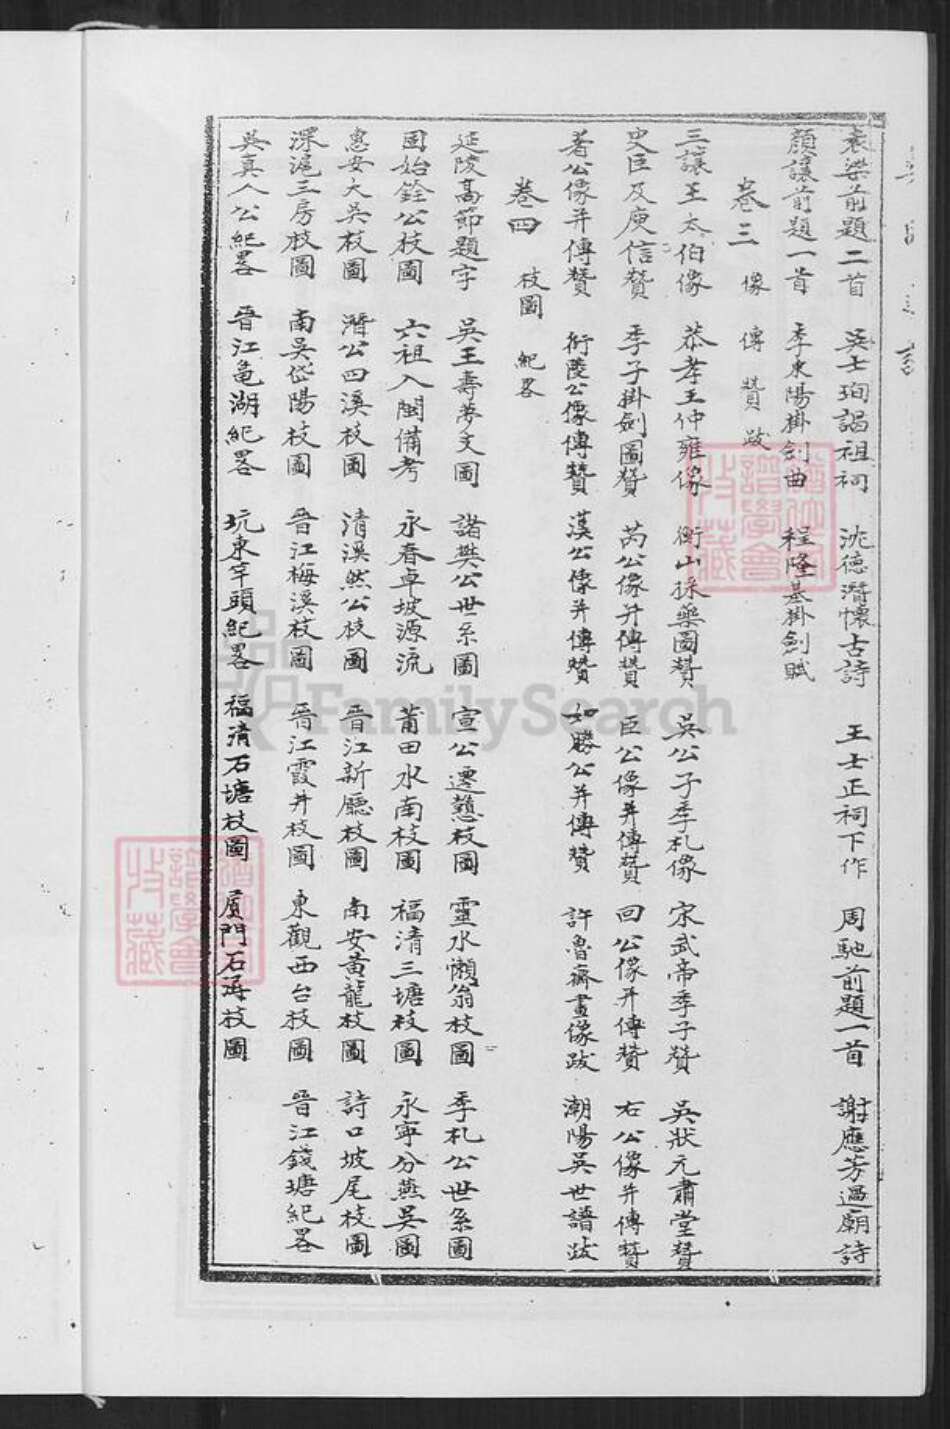 袁梁前題二首 吳士珣謁祖祠 沈德潛懷古詩 王士正祠下作 周馳前題一首 謝應芳過廟詩
顏讓前題一首 李東陽掛劍曲 程隆基掛劍賦
卷三 像 傳 贊 跋
三讓王太伯像 恭孝王仲雍像 衡山採藥圖贊 吳公子季札像 宋武帝季子贊 吳狀元肅堂贊
史臣及庾信贊 季子掛劍圖贊 芮公像并傳贊 臣公像并傳贊 回公像并傳贊 右公像并傳贊
著公像并傳贊 衍陵公像傳贊 漢公像并傳贊 如勝公并傳贊 許魯齋畫像跋 潮陽吳世譜跋
卷四 枝圖 紀畧
延陵高節題字 吳王壽夢支圖 諸樊公世系圖 宣公遷慧枝圖 靈水懶翁枝圖 季札公世系圖
固始銓公枝圖 六祖入閩備考 永春卓坡源流 莆田水南枝圖 福清三塘枝圖 永寧分燕吳圖
惠安大吳枝圖 潛公四溪枝圖 清溪然公枝圖 晉江新廳枝圖 南安黃龍枝圖 詩口坡尾枝圖
深滬三房枝圖 南吳岱陽枝圖 晉江梅溪枝圖 晉江霞井枝圖 東觀西台枝圖 晉江錢塘紀畧
吳真人公紀畧 晉江龜湖紀畧 坑東宰頭紀畧 福清石塘枝圖 廈門石潯枝圖
譜學會
收藏
譜學會
收藏
FamilySearch